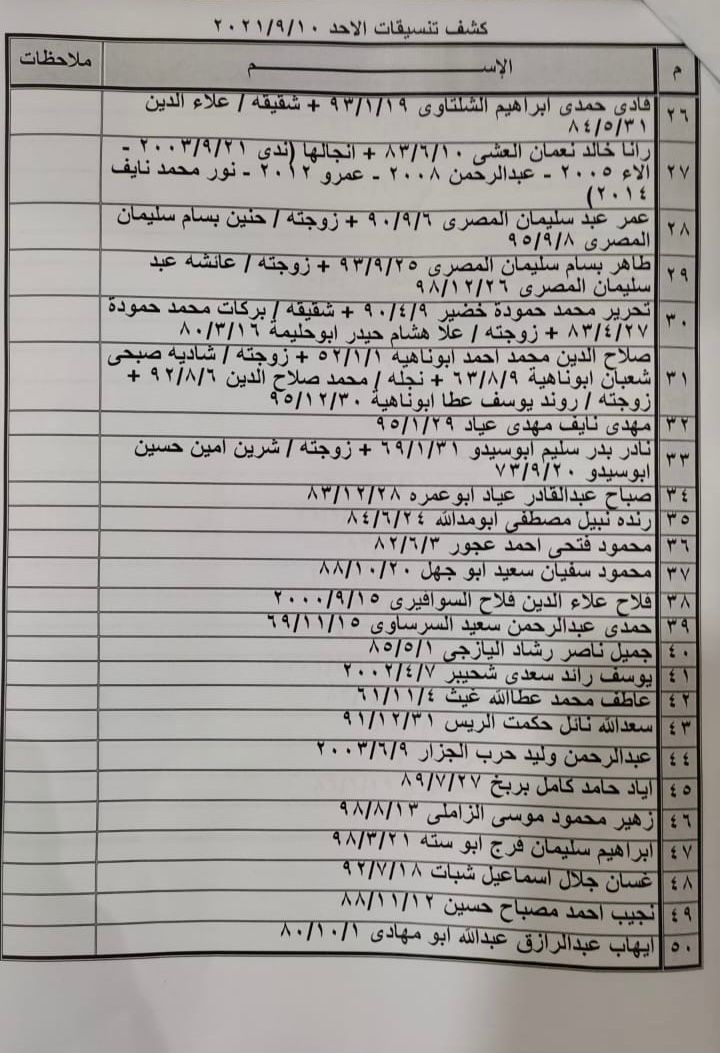 كشف تنسيقات الاحد ٢٠٢١/٩/١٠
م الإســـــــم ملاحظات
٢٦ فادى حمدى ابراهيم الشلتاوى ٩٣/١/١٩ + شقيقه / علاء الدين
٨٤/٥/٣١
٢٧ رانا خالد نعمان العشى ٨٣/٦/١٠ + انجالها (ندى ٢٠٠٣/٩/٢١ -
الاء ٢٠٠٥ - عبدالرحمن ٢٠٠٨ - عمرو ٢٠١٢ - نور محمد نايف
٢٠١٤)
٢٨ عمر عبد سليمان المصرى ٩٠/٩/٦ + زوجته / حنين بسام سليمان
المصرى ٩٥/٩/٨
٢٩ طاهر بسام سليمان المصرى ٩٣/٩/٢٥ + زوجته / عائشه عبد
سليمان المصرى ٩٨/١٢/٢٦
٣٠ تحرير محمد حمودة خضير ٩٠/٤/٩ + شقيقه / بركات محمد حمودة
٨٣/٤/٢٧ + زوجته / علا هشام حيدر ابوحليمة ٨٠/٣/١٦
٣١ صلاح الدين محمد احمد ابوناهيه ٥٢/١/١ + زوجته / شاديه صبحى
شعبان ابوناهية ٦٣/٨/٩ + نجله / محمد صلاح الدين ٩٢/٨/٦ +
زوجته / روند يوسف عطا ابوناهية ٩٥/١٢/٣٠
٣٢ مهدى نايف مهدى عياد ٩٥/١/٢٩
٣٣ نادر بدر سليم ابوسيدو ٦٩/١/٣١ + زوجته / شرين امين حسين
ابوسيدو ٧٣/٩/٢٠
٣٤ صباح عبدالقادر عياد ابوعمره ٨٣/١٢/٢٨
٣٥ رنده نبيل مصطفى ابومدالله ٨٤/٦/٢٤
٣٦ محمود فتحى احمد عجور ٨٢/٦/٣
٣٧ محمود سفيان سعيد ابو جهل ٨٨/١٠/٢٠
٣٨ فلاح علاء الدين فلاح السوافيرى ٢٠٠٠/٩/١٥
٣٩ حمدى عبدالرحمن سعيد السرساوى ٦٩/١١/١٥
٤٠ جميل ناصر رشاد اليازجى ٨٥/٥/١
٤١ يوسف رائد سعدى شحيبر ٢٠٠٢/٤/٧
٤٢ عاطف محمد عطاالله غيث ٦١/١١/٤
٤٣ سعدالله نائل حكمت الريس ٩١/١٢/٣١
٤٤ عبدالرحمن وليد حرب الجزار ٢٠٠٣/٦/٩
٤٥ اياد حامد كامل بربخ ٨٩/٧/٢٧
٤٦ زهير محمود موسى الزاملى ٩٨/٨/١٣
٤٧ ابراهيم سليمان فرج ابو سته ٩٨/٣/٢١
٤٨ غسان جلال اسماعيل شبات ٩٢/٧/١٨
٤٩ نجيب احمد مصباح حسين ٨٨/١١/١٢
٥٠ ايهاب عبدالرازق عبدالله ابو مهادى ٨٠/١٠/١